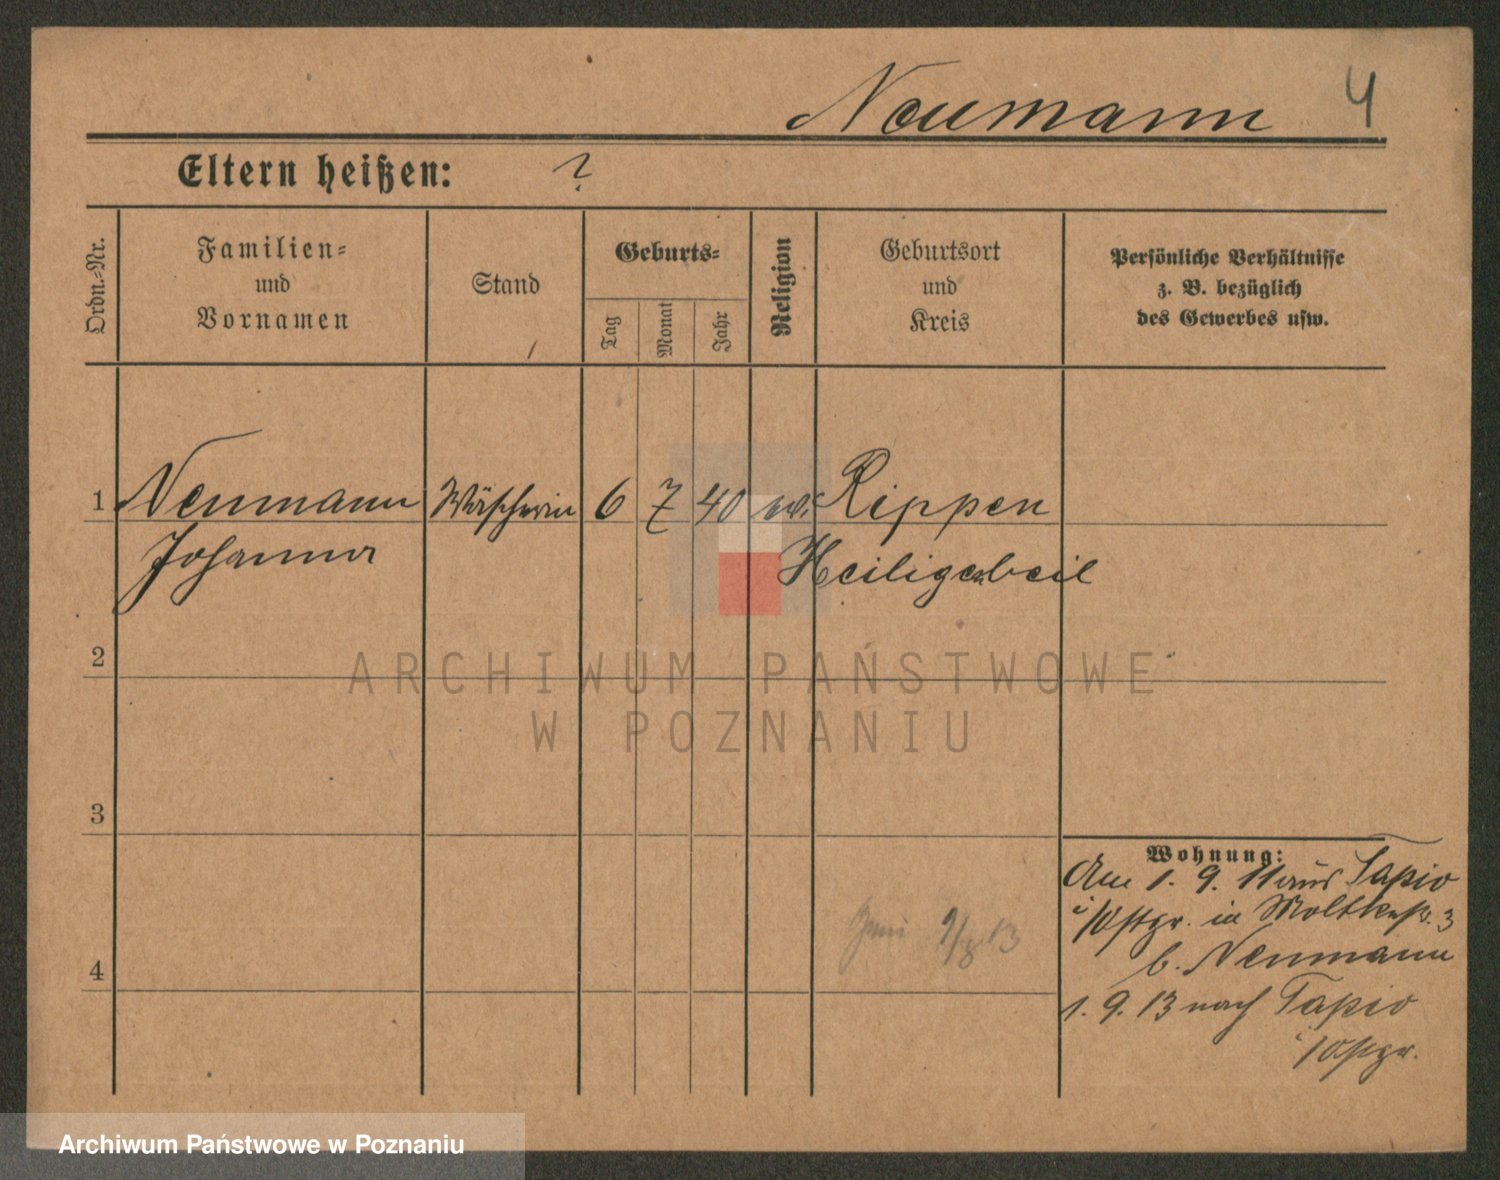 Neumann 4
Eltern heißen: ?
Ordn.-Nr.
Familien-
und
Vornamen
Stand
Geburts-
Tag
Monat
Jahr
Religion
Geburtsort
und
Kreis
Persönliche Verhältnisse
z. B. bezüglich
des Gewerbes usw.
1 Neumann Wäscherin 6 7 40 ev. Rippen
Johanna Heiligenbeil
2
ARCHIWUM PAŃSTWOWE
W POZNANIU
3
Wohnung:
Am 1. 9. 11 aus Tapiau
i/Ostpr. in Moltkestr. 3
9/8 13
b. Neumann
4
1. 9. 13 nach Tapiau
i/Ostpr.
Archiwum Państwowe w Poznaniu